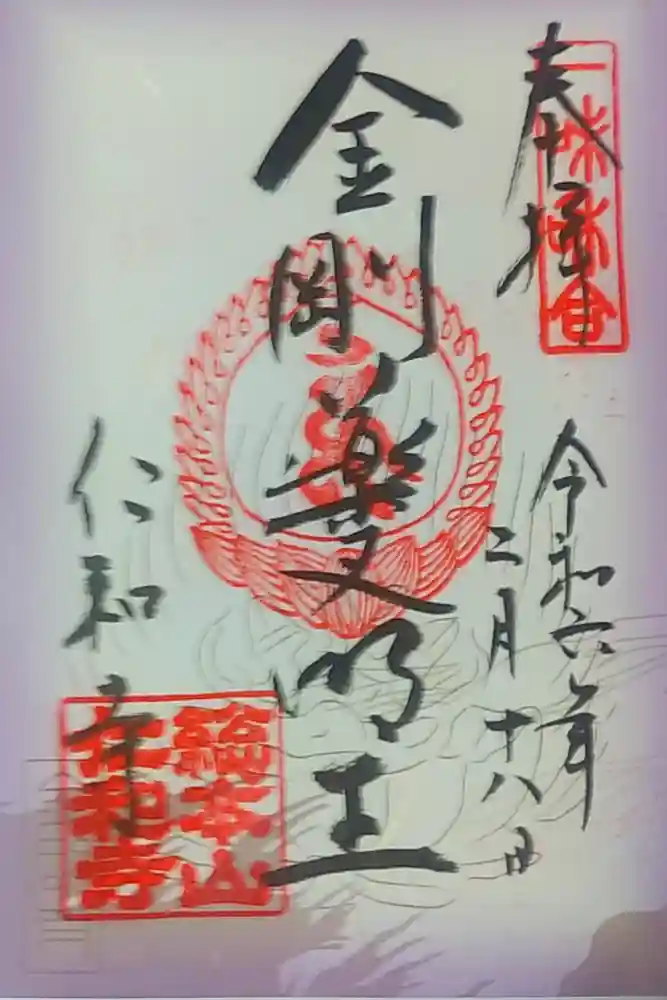 奉拝
一味和合
令和六年
二月十八日
金剛薬叉明王
仁和寺
總本山
仁和寺